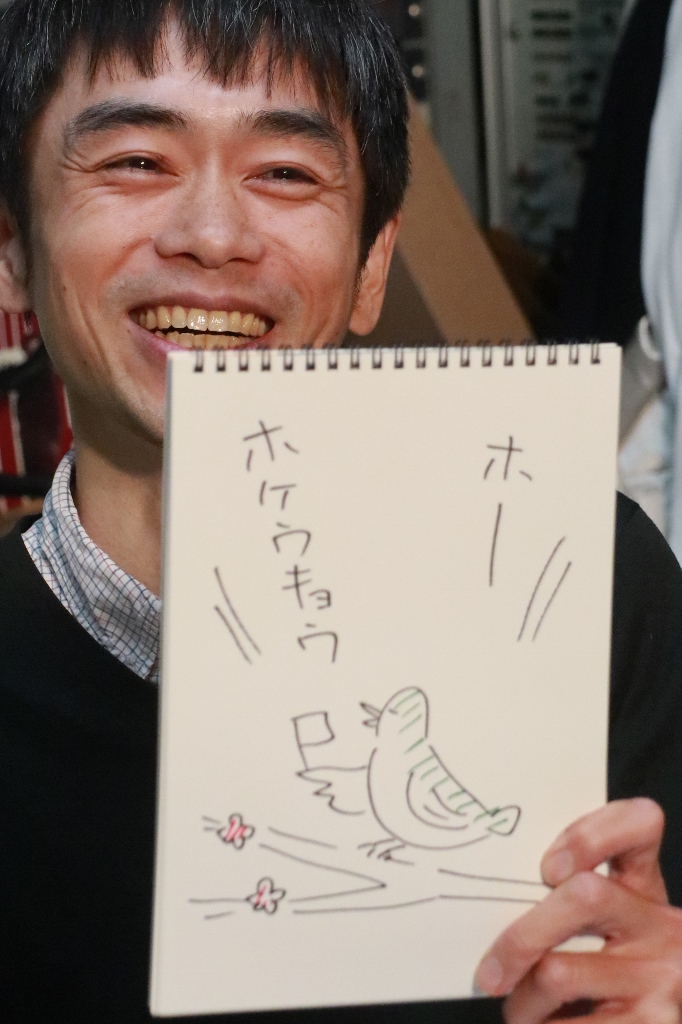 ホー
ホケウキョウ